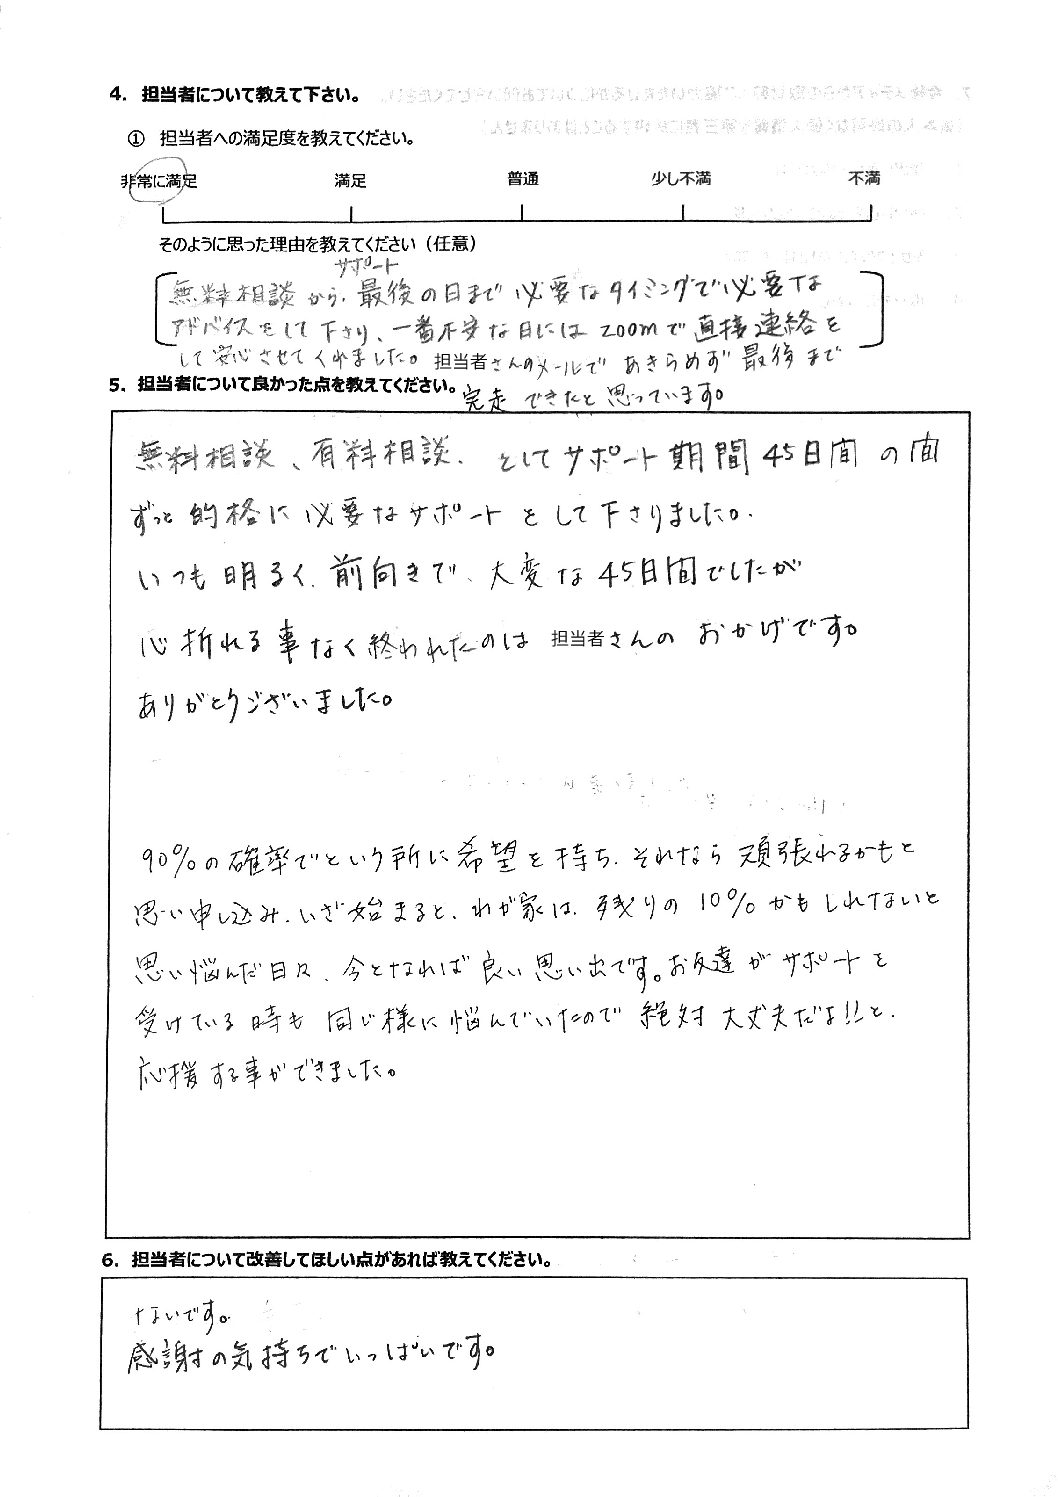 4. 担当者について教えて下さい。
① 担当者への満足度を教えてください。
非常に満足 満足 普通 少し不満 不満
そのように思った理由を教えてください（任意）
サポート
無料相談から、最後の日まで必要なタイミングで必要な
アドバイスをして下さり、一番不安な日にはzoomで直接連絡を
して安心させてくれました。担当者さんのメールであきらめず最後まで
完走できたと思っています。
5. 担当者について良かった点を教えてください。
無料相談、有料相談、そしてサポート期間45日間の間
ずっと的格に必要なサポートをして下さりました。
いつも明るく、前向きで、大変な45日間でしたが
心折れる事なく終われたのは担当者さんのおかげです。
ありがとうございました。
90%の確率でという所に希望を持ち、それなら頑張れるかもと
思い申し込み、いざ始まると、わが家は、残りの10%かもしれないと
思い悩んだ日々、今となれば良い思い出です。お友達がサポートを
受けている時も同じ様に悩んでいたので絶対大丈夫だよ!!と、
応援する事ができました。
6. 担当者について改善してほしい点があれば教えてください。
ないです。
感謝の気持ちでいっぱいです。